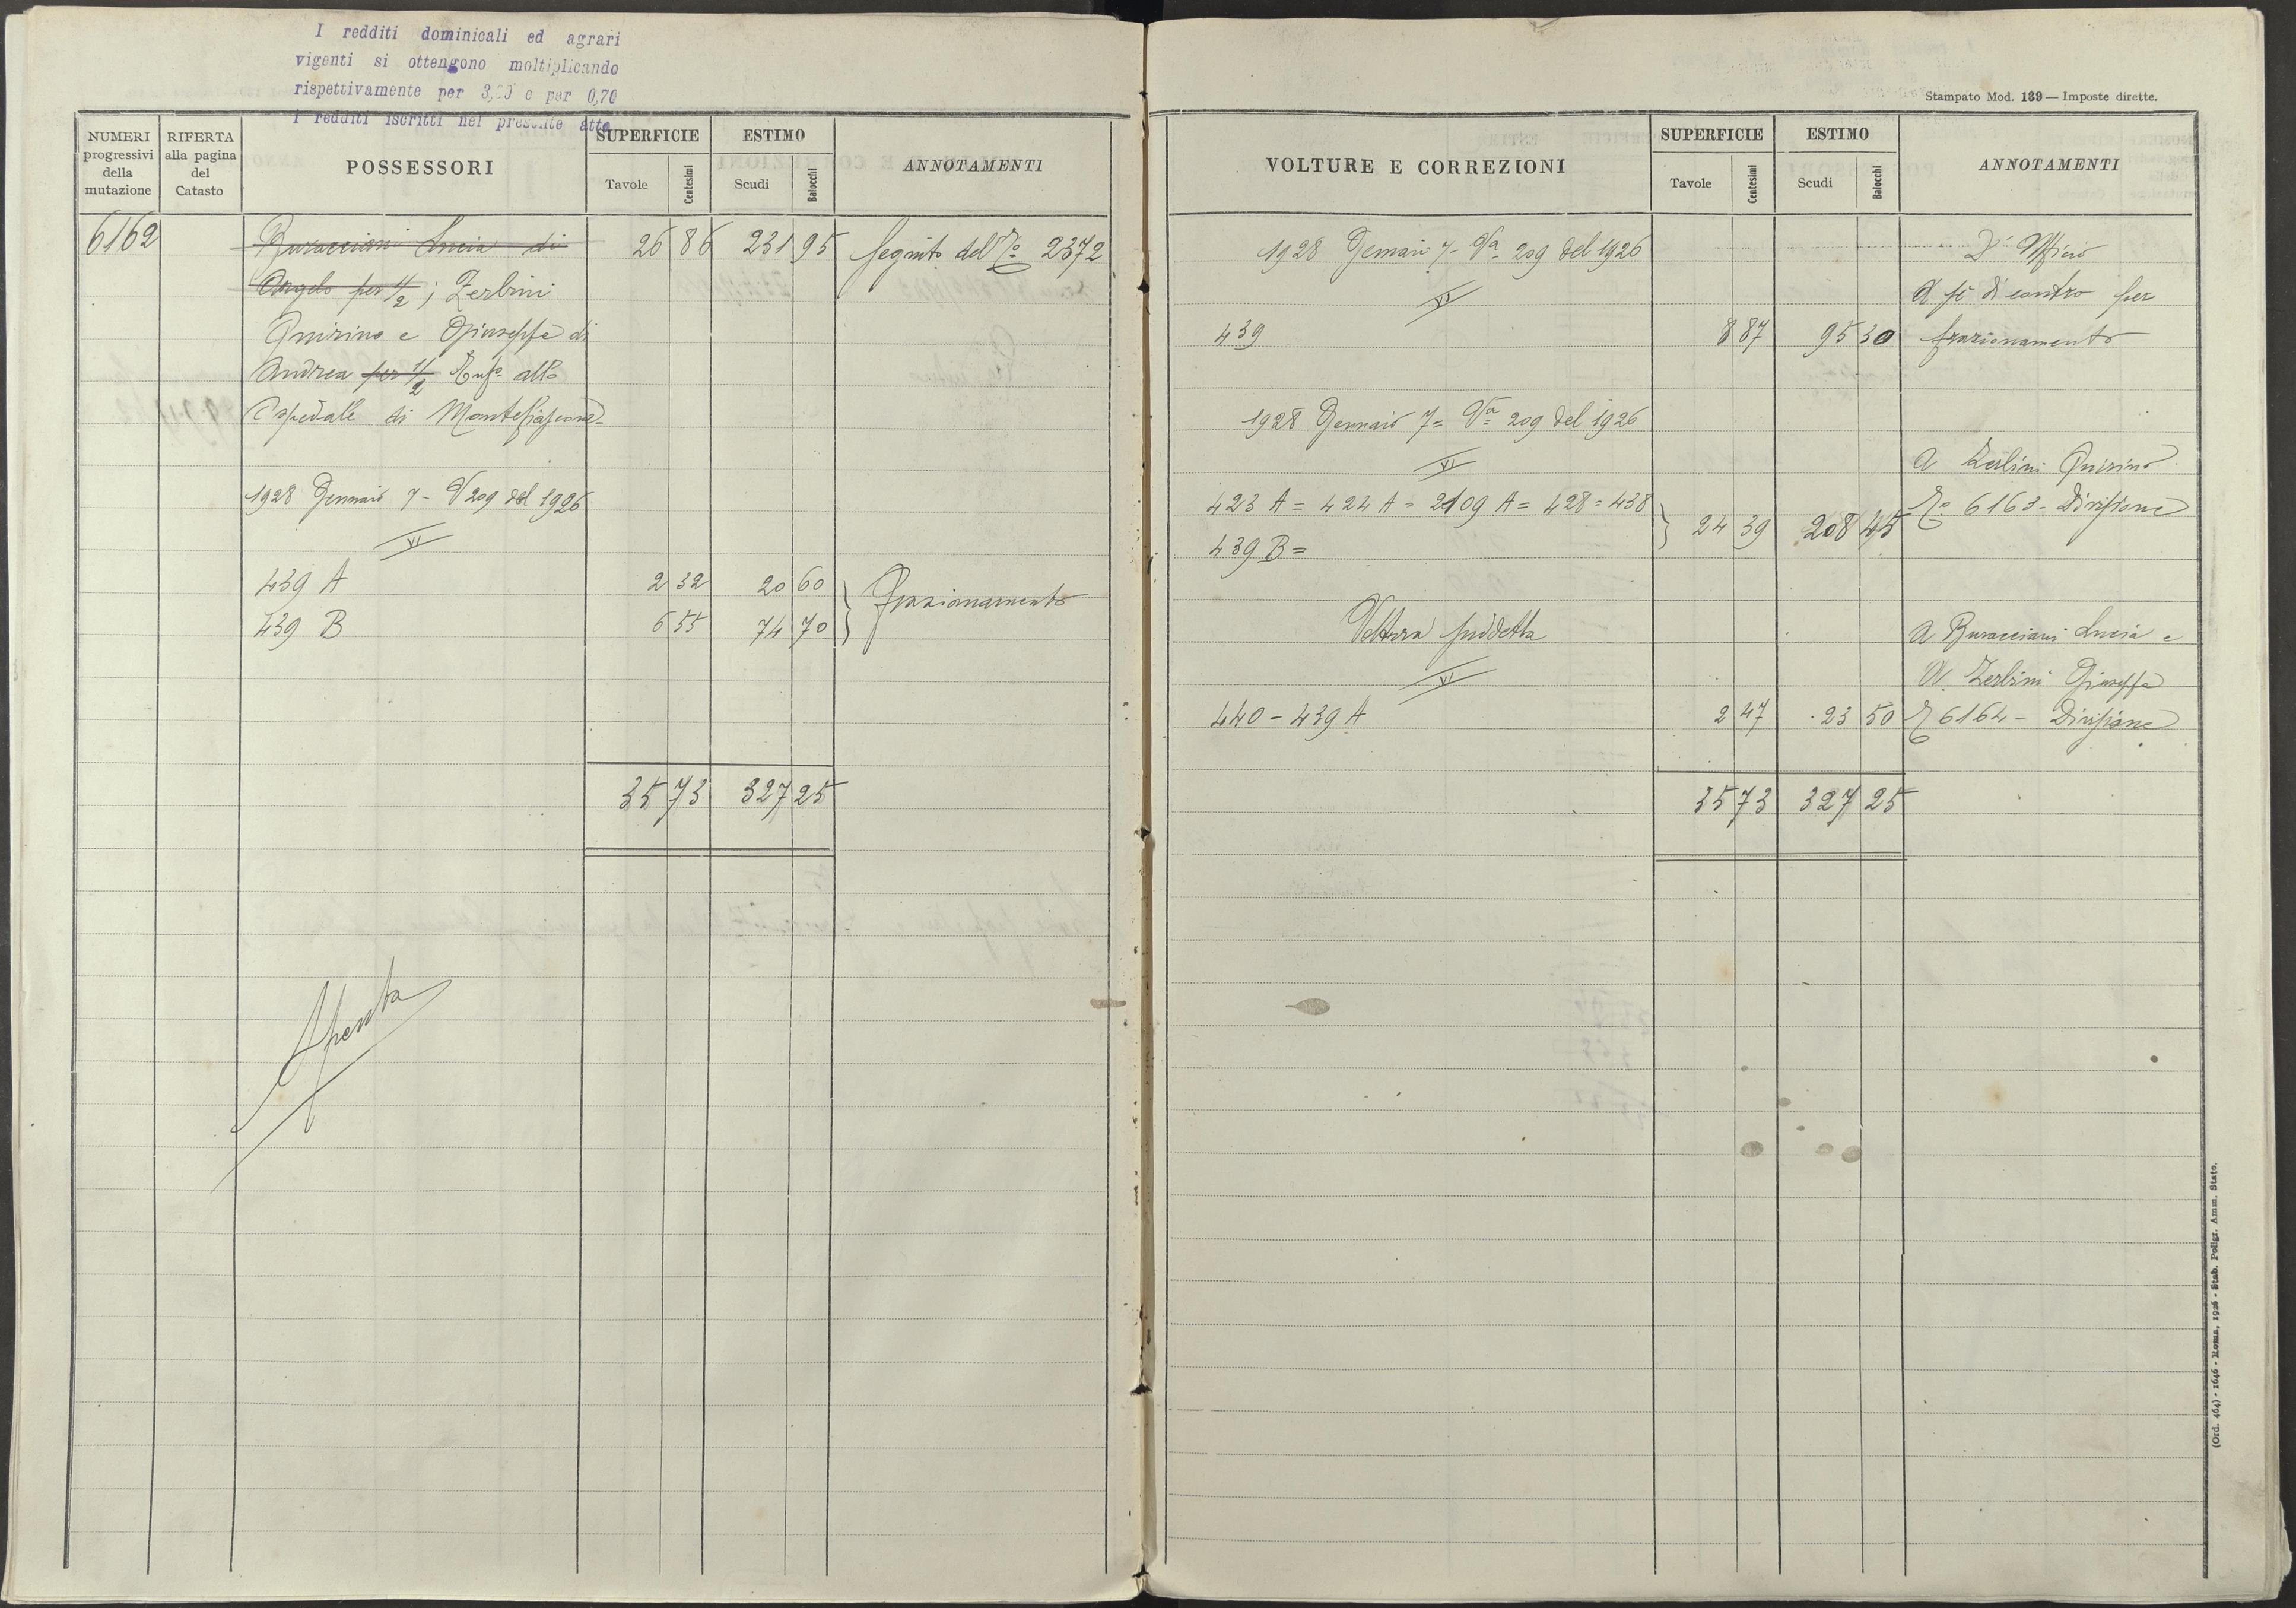 I redditi dominicali ed agrari
vigenti si ottengono moltiplicando
rispettivamente per 3,20 e per 0,70
i redditi iscritti nel presente atto
NUMERI progressivi della mutazione
RIFERTA alla pagina del Catasto
POSSESSORI
SUPERFICIE
Tavole
Centesimi
ESTIMO
Scudi
Baiocchi
ANNOTAMENTI
6162 Buracciani Lucia di 26 86 231 95 Seguito del No 2372
Angelo per 1/2; Zerbini
Quirino e Giuseppe di
Andrea per 1/2 Enfa. allo
Ospedale di Montefiascone
1928 Gennaio 7 - Va 209 del 1926
VI
439 A 2 32 20 60
439 B 6 55 74 70 } Frazionamento
35 73 327 25
Spenta
Stampato Mod. 139 — Imposte dirette.
VOLTURE E CORREZIONI
SUPERFICIE
Tavole
Centesimi
ESTIMO
Scudi
Baiocchi
ANNOTAMENTI
1928 Gennaio 7 - Va 209 del 1926 D'Ufficio
VI A sè di contro per
439 8 87 95 30 frazionamento
1928 Gennaio 7 = Va 209 del 1926
VI A Zerbini Quirino
423 A = 424 A = 2109 A = 428 = 438 Ro 6163 - Divisione
439 B = } 24 39 208 45
Voltura suddetta A Buracciani Lucia e
VI A Zerbini Giuseppe
440 - 439 A 2 47 23 50 R 6164 - Divisione
35 73 327 25
(Ord. 464) - 1646 - Roma, 1926 - Stab. Poligr. Amm. Stato.